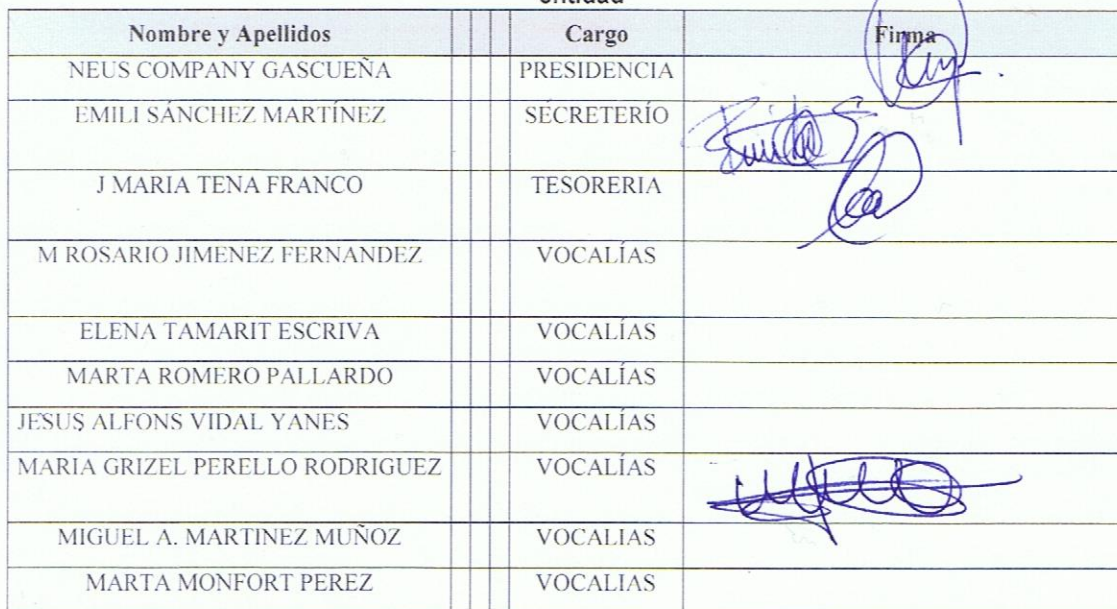 entidad
Nombre y Apellidos Cargo Firma
NEUS COMPANY GASCUEÑA PRESIDENCIA
EMILI SÁNCHEZ MARTÍNEZ SECRETERÍO
J MARIA TENA FRANCO TESORERIA
M ROSARIO JIMENEZ FERNANDEZ VOCALÍAS
ELENA TAMARIT ESCRIVA VOCALÍAS
MARTA ROMERO PALLARDO VOCALÍAS
JESUS ALFONS VIDAL YANES VOCALÍAS
MARIA GRIZEL PERELLO RODRIGUEZ VOCALÍAS
MIGUEL A. MARTINEZ MUÑOZ VOCALIAS
MARTA MONFORT PEREZ VOCALIAS